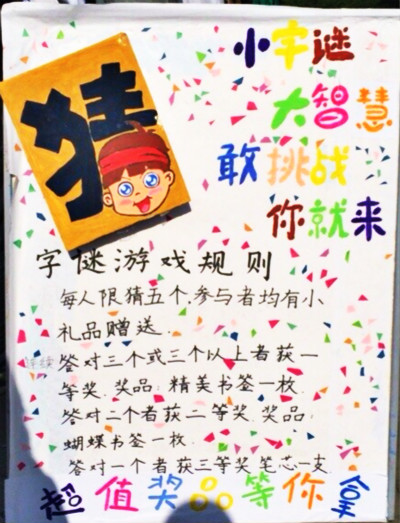 猜
小字谜
大智慧
敢挑战
你就来
字谜游戏规则
每人限猜五个,参与者均有小
礼品赠送.
答对三个或三个以上者获一
等奖.奖品:精美书签一枚.
答对二个者获二等奖.奖品:
蝴蝶书签一枚.
答对一个者获三等奖笔芯一支
超值奖品等你拿